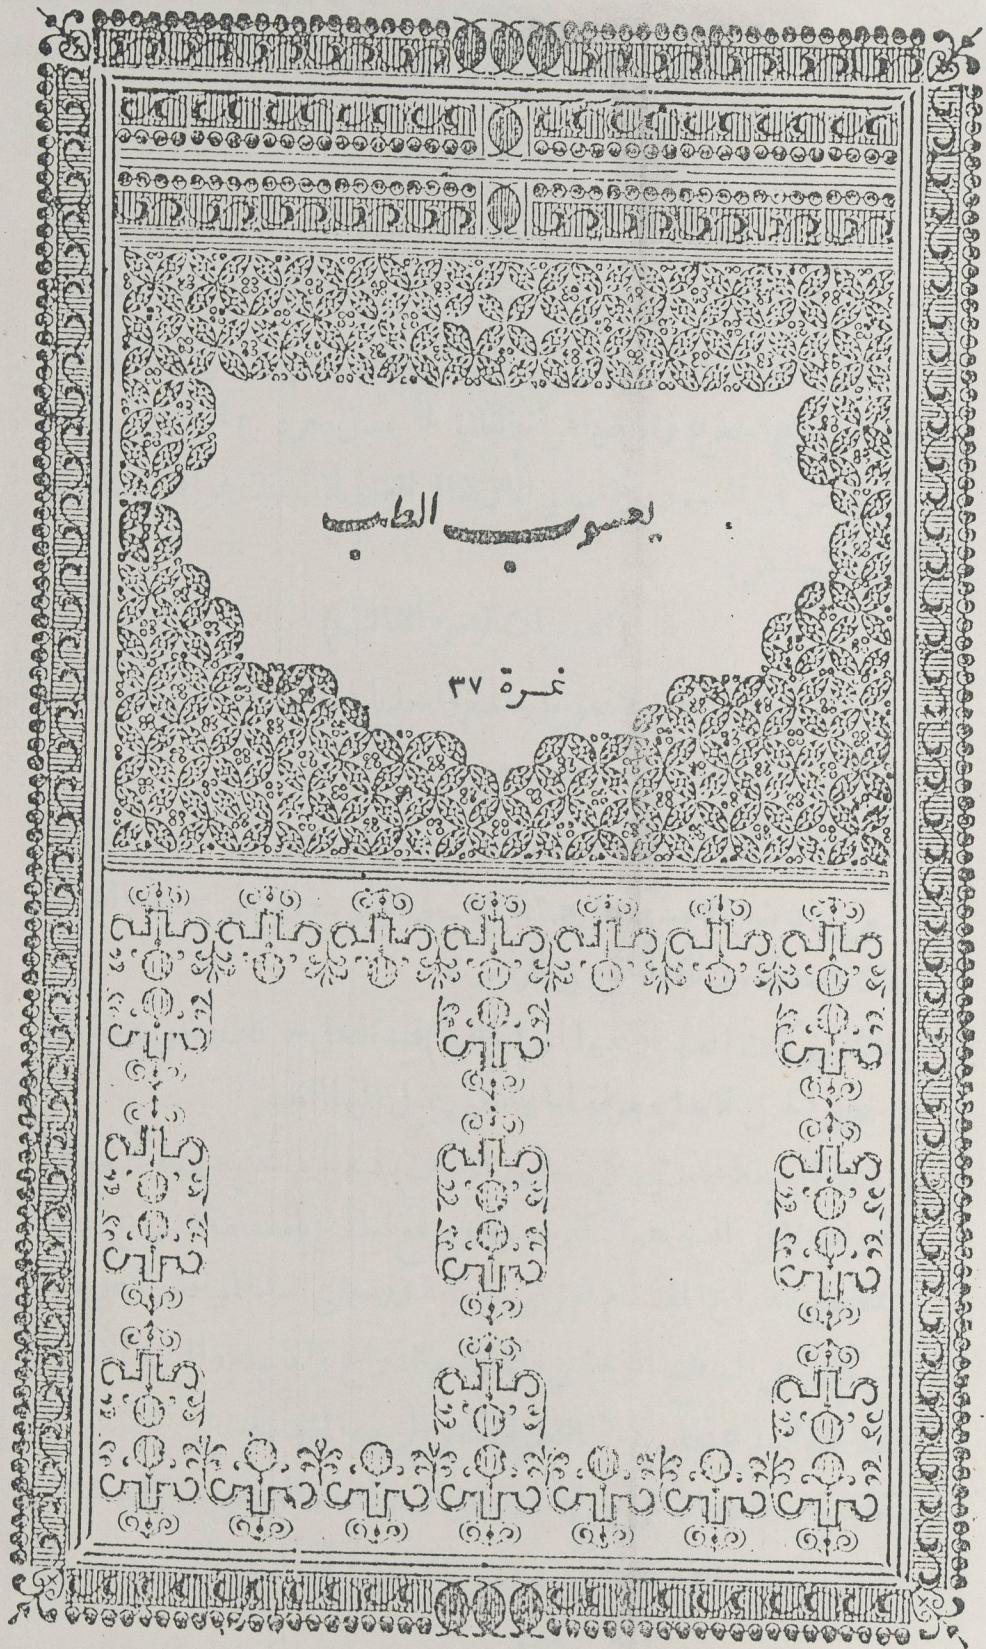 يعسوب الطب
نمرة ٣٧